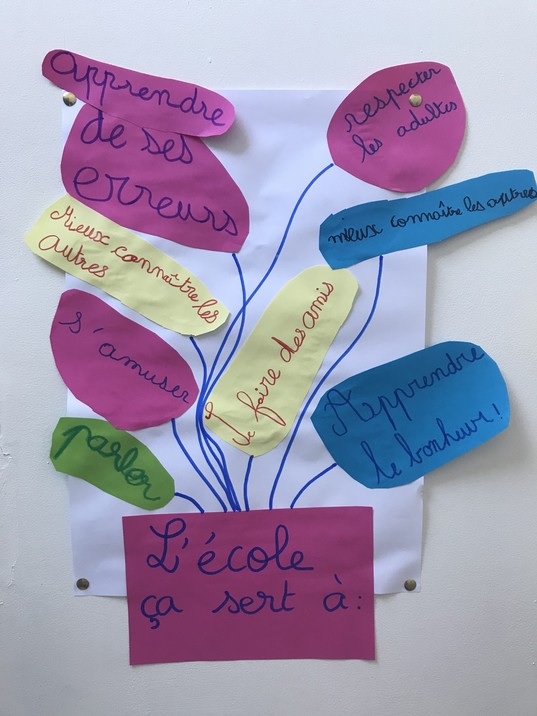 apprendre
de ses
erreurs
respecter
les adultes
mieux connaître les autres
Mieux connaître les
autres
Se faire des amis
s'amuser
Apprendre
le bonheur!
parler
L'école
ça sert à: